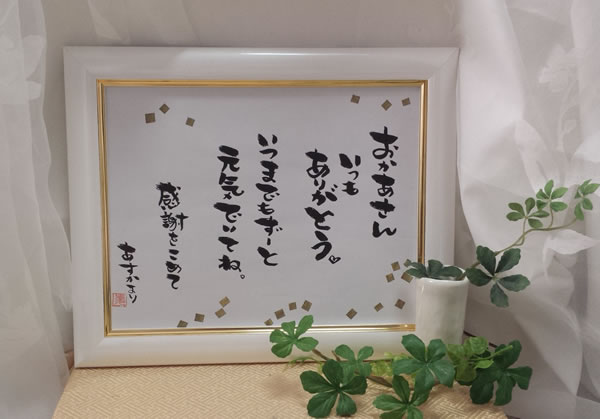 おかあさん
いつも
ありがとう。
いつまでもずーと
元気でいてね。
感謝をこめて
あすかより